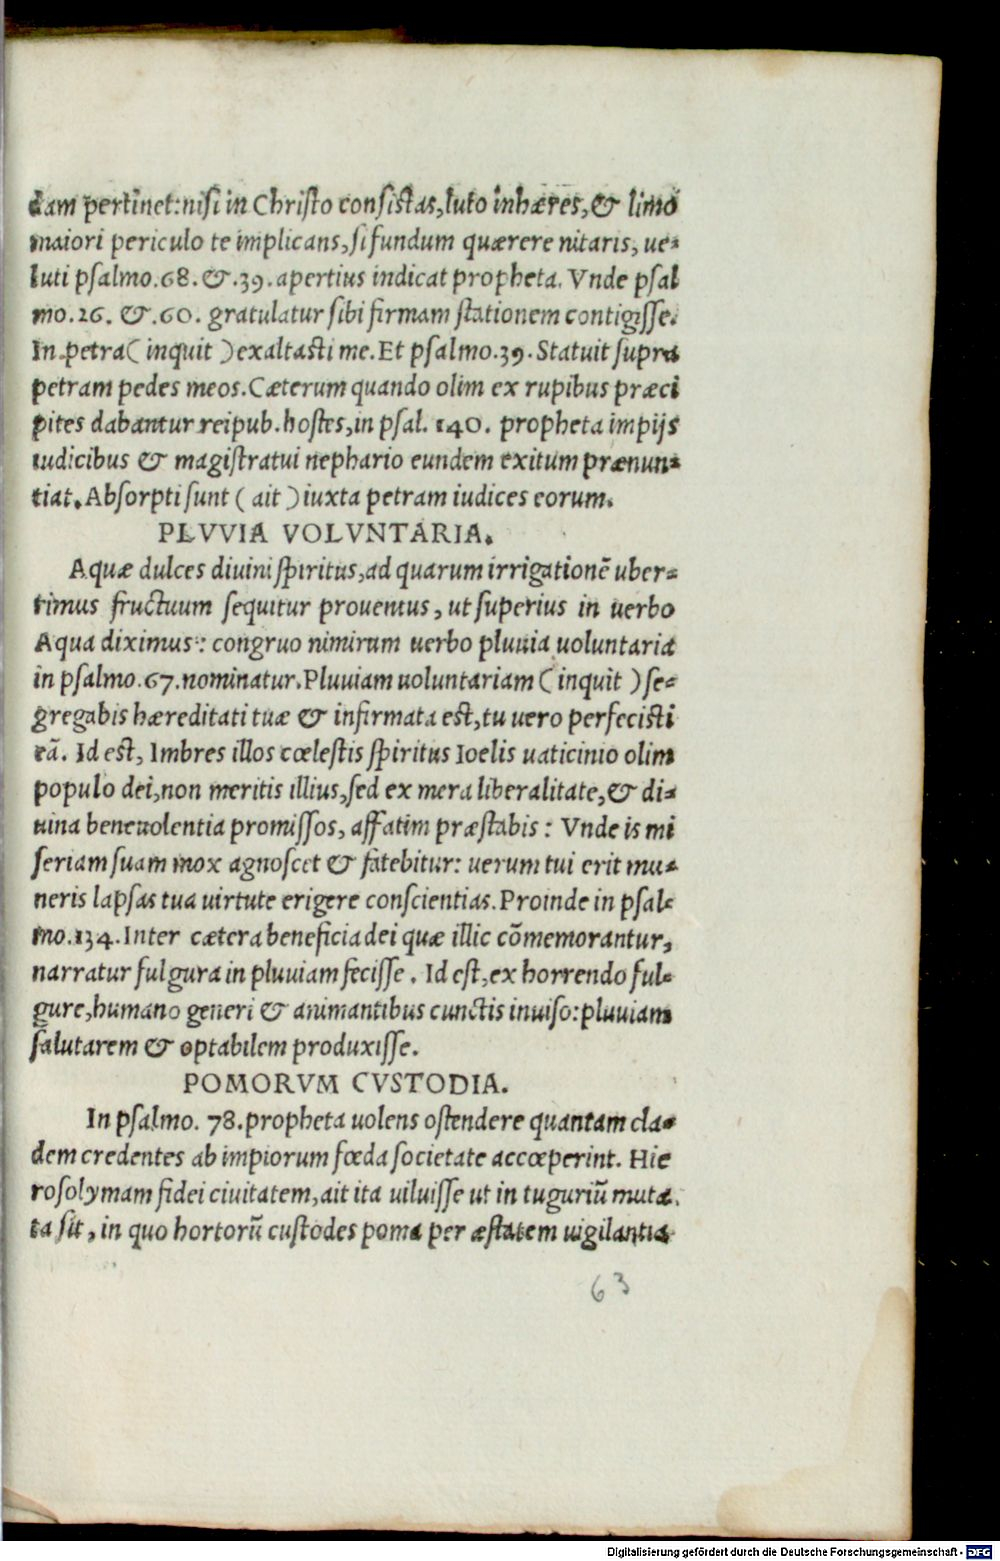 dam pertinet: nisi in Christo consistas, luto inhæres, & limō
maiori periculo te implicans, si fundum quærere nitaris, ue-
luti psalmo.68. &.39. apertius indicat propheta. Vnde psal
mo.26. &.60. gratulatur sibi firmam stationem contigisse.
In petra ( inquit ) exaltasti me. Et psalmo.39. Statuit supra
petram pedes meos. Cæterum quando olim ex rupibus præci
pites dabantur reipub. hostes, in psal. 140. propheta impijs
iudicibus & magistratui nephario eundem exitum prænun-
tiat. Absorpti sunt ( ait ) iuxta petram iudices eorum.
PLVVIA VOLVNTARIA.
Aquæ dulces diuini spiritus, ad quarum irrigationē uber-
rimus fructuum sequitur prouentus, ut superius in uerbo
Aqua diximus: congruo nimirum uerbo pluuia uoluntaria
in psalmo.67. nominatur. Pluuiam uoluntariam ( inquit ) se-
gregabis hæreditati tuæ & infirmata est, tu uero perfecisti
eā. Id est, Imbres illos cœlestis spiritus Ioelis uaticinio olim
populo dei, non meritis illius, sed ex mera liberalitate, & di-
uina beneuolentia promissos, affatim præstabis: Vnde is mi
seriam suam mox agnoscet & fatebitur: uerum tui erit mu-
neris lapsas tua uirtute erigere conscientias. Proinde in psal-
mo.134. Inter cætera beneficia dei quæ illic cōmemorantur,
narratur fulgura in pluuiam fecisse. Id est, ex horrendo ful-
gure, humano generi & animantibus cunctis inuiso: pluuiam
salutarem & optabilem produxisse.
POMORVM CVSTODIA.
In psalmo. 78. propheta uolens ostendere quantam cla-
dem credentes ab impiorum fœda societate accœperint. Hie
rosolymam fidei ciuitatem, ait ita uiluisse ut in tuguriū muta
ta sit, in quo hortorū custodes poma per æstatem uigilantia
63
Digitalisierung gefördert durch die Deutsche Forschungsgemeinschaft - DFG